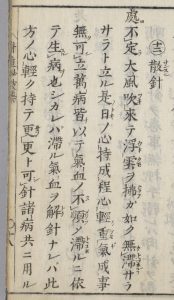 十二散針
處不定大風吹来テ浮雲ヲ掃カ如ク無滞サラ
サラト立ル是日ノ心持成程心軽重氣成事
無可立萬病皆以テ氣血ノ不順ノ滞ルニ依
テ生病也シカレバ滞ル氣血ヲ解針ナレバ此
方ノ心軽ク持テ更〻ト可針諸病共ニ用ル